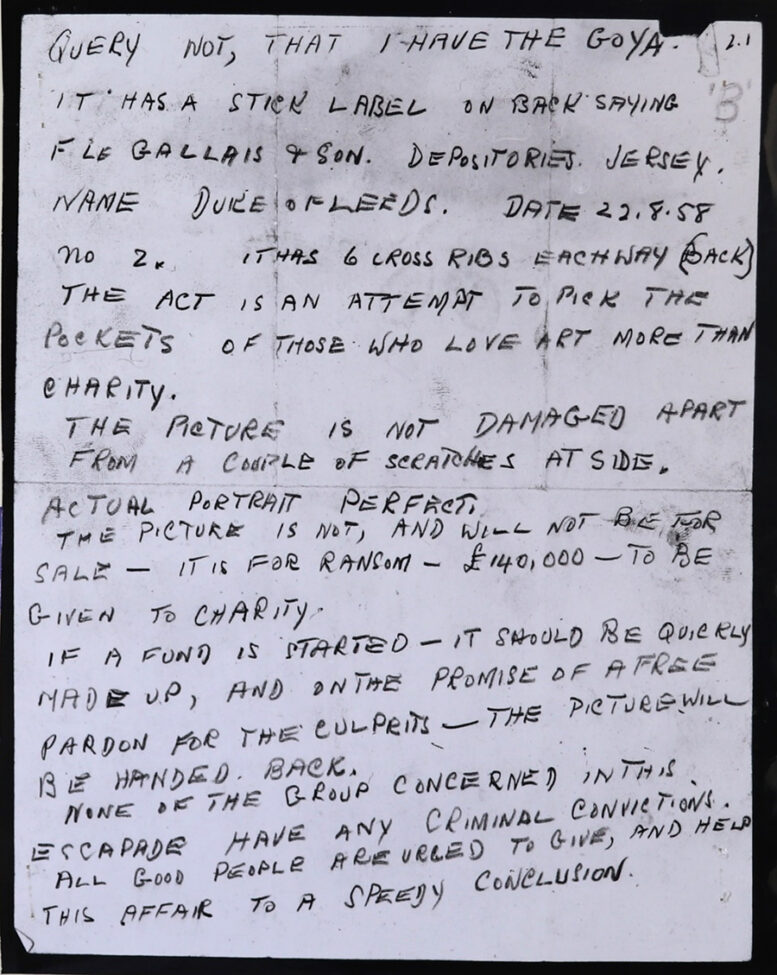 QUERY NOT, THAT I HAVE THE GOYA. 2.1
'B'
IT HAS A STICK LABEL ON BACK SAYING
F LE GALLAIS & SON. DEPOSITORIES. JERSEY.
NAME DUKE OF LEEDS. DATE 22.8.58
NO 2. IT HAS 6 CROSS RIBS EACHWAY (BACK)
THE ACT IS AN ATTEMPT TO PICK THE
POCKETS OF THOSE WHO LOVE ART MORE THAN
CHARITY.
THE PICTURE IS NOT DAMAGED APART
FROM A COUPLE OF SCRATCHES AT SIDE.
ACTUAL PORTRAIT PERFECT.
THE PICTURE IS NOT, AND WILL NOT BE FOR
SALE — IT IS FOR RANSOM — £140,000 — TO BE
GIVEN TO CHARITY.
IF A FUND IS STARTED — IT SHOULD BE QUICKLY
MADE UP, AND ON THE PROMISE OF A FREE
PARDON FOR THE CULPRITS — THE PICTURE WILL
BE HANDED. BACK.
NONE OF THE GROUP CONCERNED IN THIS
ESCAPADE HAVE ANY CRIMINAL CONVICTIONS.
ALL GOOD PEOPLE ARE URGED TO GIVE, AND HELP
THIS AFFAIR TO A SPEEDY CONCLUSION.